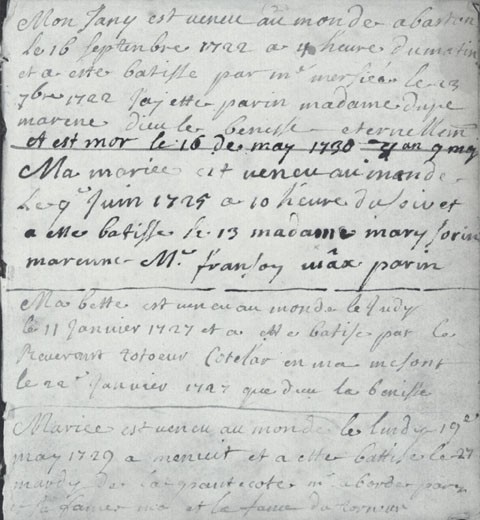 Mon Jany est veneu au monde a baston
le 16 Septenbre 1722 a 4 heure du matin
et a ette batisse par mr mersiée le 23
7bre 1722 J'aj ette parin madame dupe
marene dieu le benisse eternellem
et est mor le 16 de may 1730
Ma mariee est veneu au monde
Le 9e Juin 1725 a 10 heure du soir et
a ette batisse le 13 madame mary
marenne Mr fransoy parin
Ma bette est veneu au monde le Judy
le 11 Janvier 1727 et a ette batise par le
Reverant Cotelar en ma meson
le 22e Janvier 1727 que dieu la benisse
Mariee est veneu au monde le lundy 19e
may 1729 a menuit et a ette battise le 27
mardy de la mr
et sa fame et la fame du